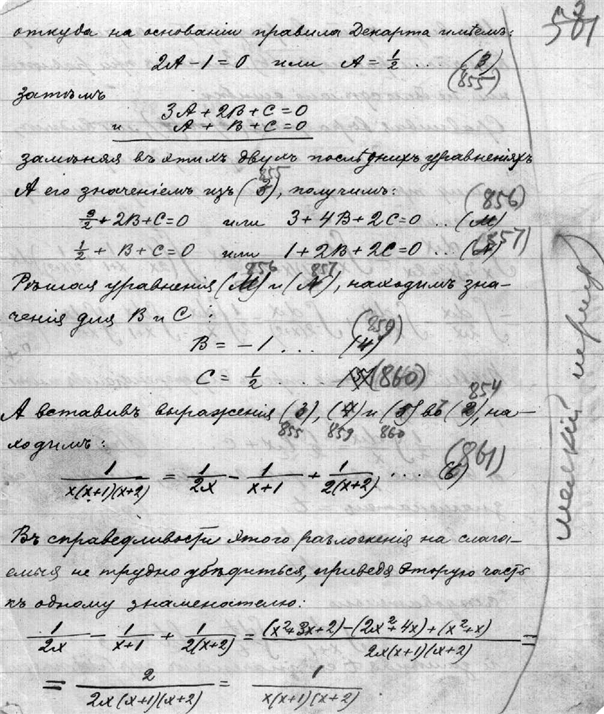 581
откуда на основаніи правила Декарта имѣемъ:
2A - 1 = 0 или A = 1/2 ... (3) (855)
затѣмъ
3A + 2B + C = 0
и A + B + C = 0
замѣняя въ этихъ двухъ послѣднихъ уравненіяхъ
A его значеніемъ изъ (3) 855, получимъ:
3/2 + 2B + C = 0 или 3 + 4B + 2C = 0 ... (M) (856)
1/2 + B + C = 0 или 1 + 2B + 2C = 0 ... (N) (857)
Рѣшая уравненія (M) 856 и (N) 857, находимъ зна-
ченія для B и C:
B = -1 ... (4) (859)
C = 1/2 ... (860)
А вставивъ выраженія (3), (4) и (5) въ (2) 854, на-
855 859 860
ходимъ:
1/x(x+1)(x+2) = 1/2x - 1/x+1 + 1/2(x+2) ... (6) (861)
Въ справедливости этого разложенія на слага-
емыя не трудно убѣдиться, приведя вторую часть
къ одному знаменателю:
1/2x - 1/x+1 + 1/2(x+2) = (x²+3x+2)-(2x²+4x)+(x²+x)/2x(x+1)(x+2) =
= 2/2x(x+1)(x+2) = 1/x(x+1)(x+2).
мелкій